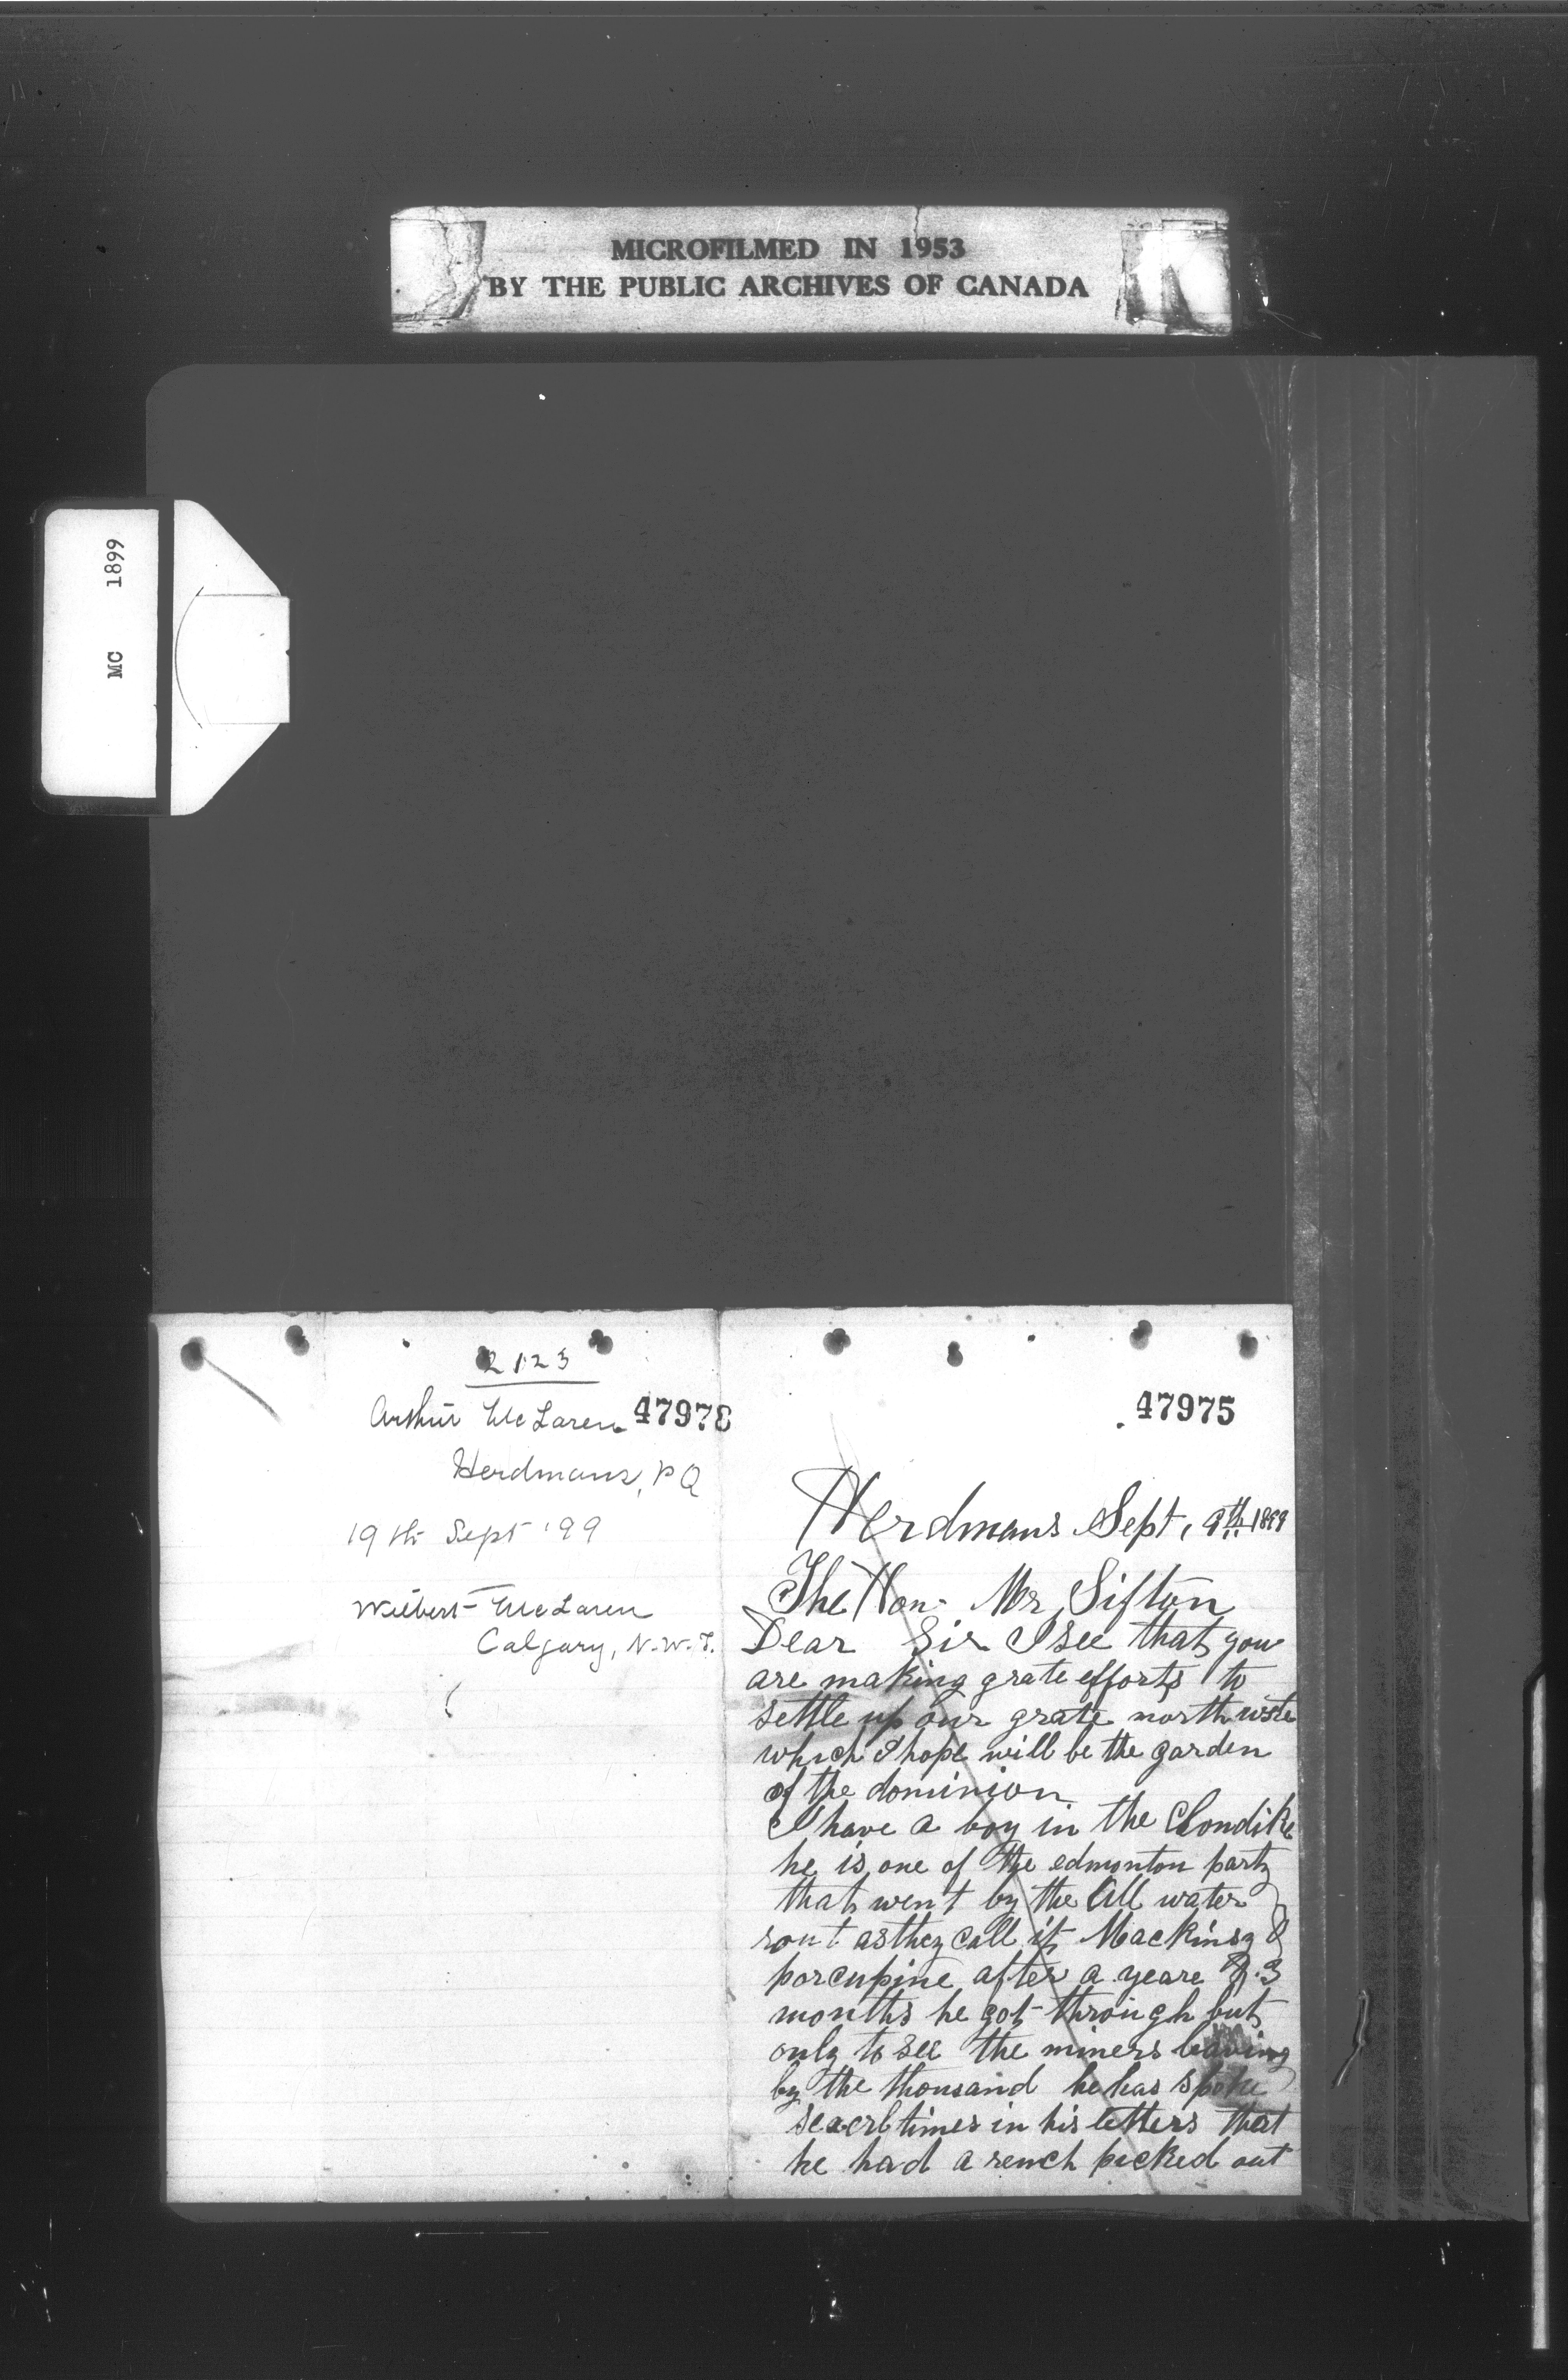 MICROFILMED IN 1953
BY THE PUBLIC ARCHIVES OF CANADA
MC 1899
2123
Arthur McLaren 47978
Herdmans, P Q
19th Sept '99
Wilbert McLaren
Calgary, N.W.T.
47975
Herdmans Sept, 9th 1899
The Hon. Mr Sifton
Dear Sir I see that you
are making grate efforts to
settle up our grate north wste
which I hope will be the garden
of the dominion
I have a boy in the Clondike
he is one of the edmonton party
that went by the All water
rout as they call it Mackinzy &
porcupine after a yeare & 3
months he got through but
only to see the miners leaving
by the thousand he has spoke
severl times in his letters that
he had a rench picked out